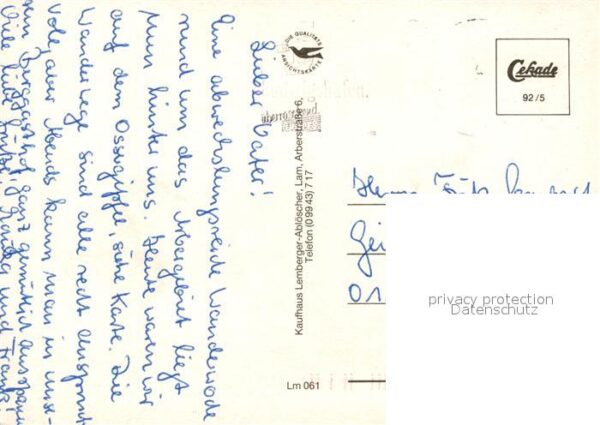 Lieber Vater!
Eine abwechslungsreiche Wanderwoche
rund um das Arbergebiet liegt
nun hinter uns. Heute waren wir
auf dem Ossergipfel, siehe Karte. Die
Wanderwege sind alle recht anspruchs-
voll, aber abends kann man in unse-
rem Berggasthof ganz gemütlich ausspannen
Viele liebe Grüße und
DIE QUALITÄTS
ANSICHTSKARTE
Kaufhaus Lemberger-Ablöscher, Lam, Arberstraße 6,
Telefon (0 99 43) 7 17
Lm 061
Cekade
92/5
Herrn
01
privacy protection
Datenschutz